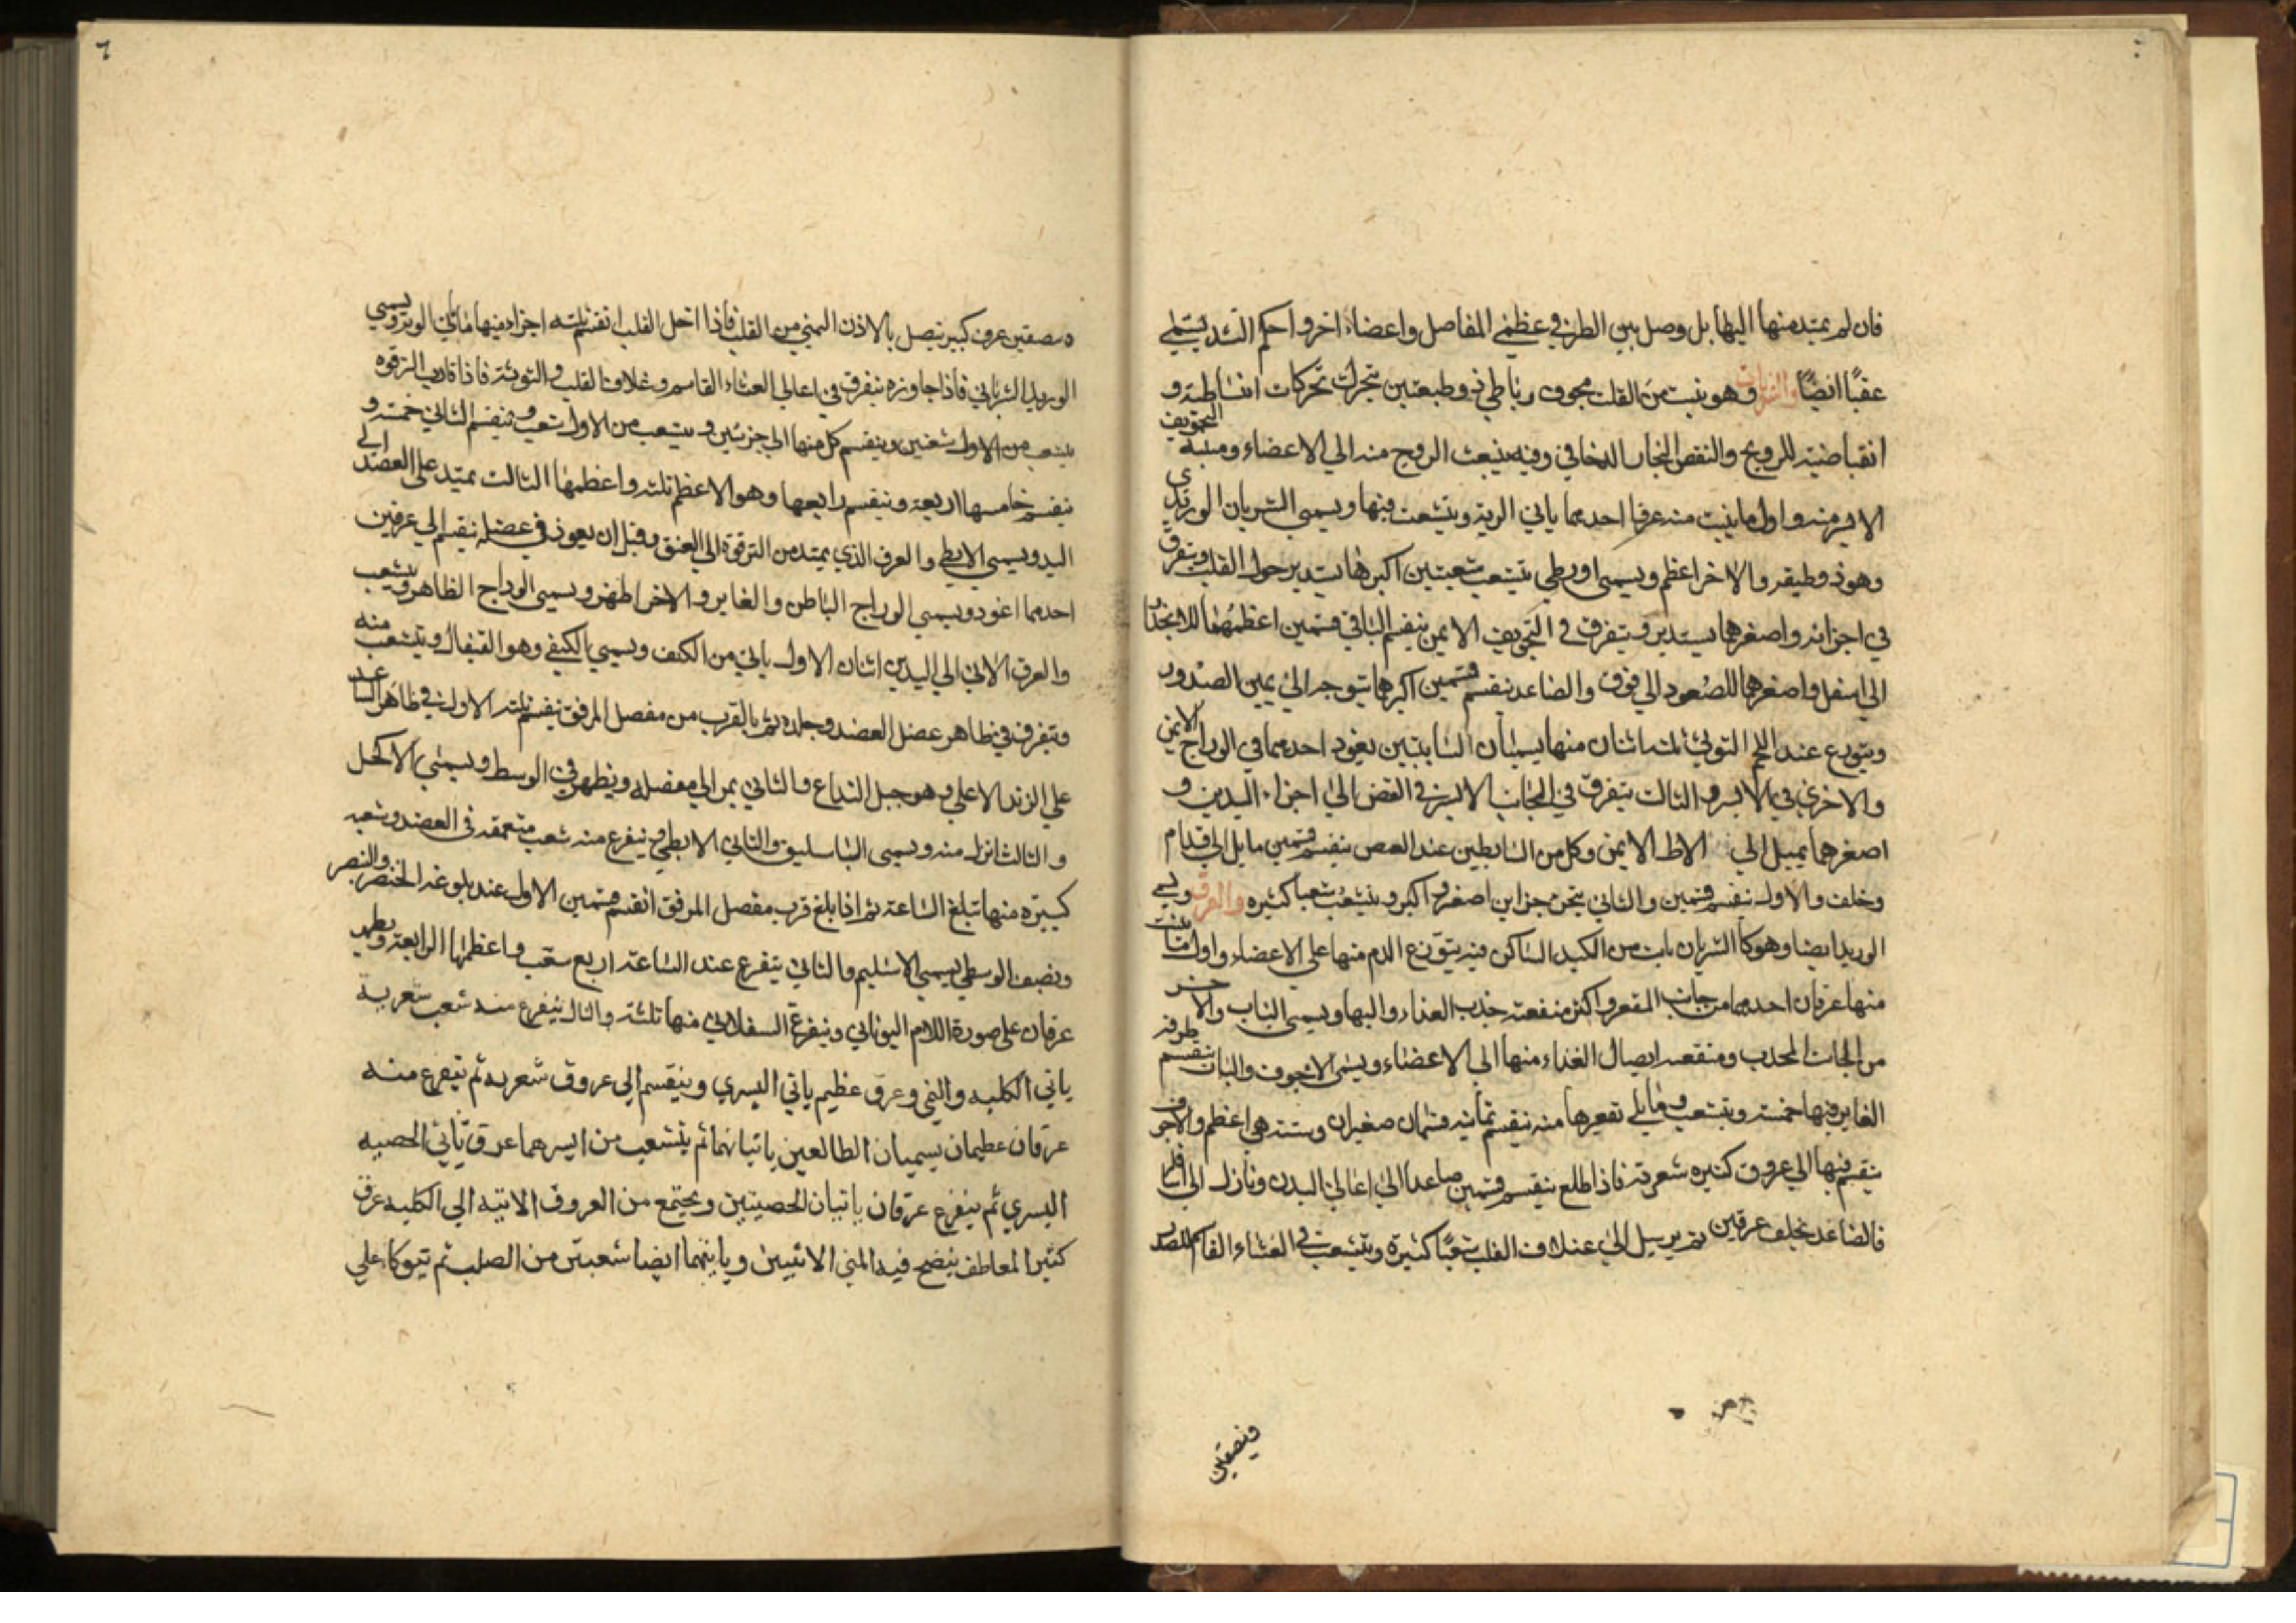 فان لم يمتد منها اليها بل وصل بين الطرفي عظمي المفاصل واعضاء اخر واحكم الشد يسمي
عقبًا ايضًا والشريان وهو ينبت من القلب مجوف رباطي ذو طبقتين يتحرك تحركات انبساطية و
انقباضية للرويح والنفض البخار الدخاني وفيه ينبعث الروح منه الي الاعضاء ومنبته التجويف
الايسر منه واول ما ينبت منه عرقا احدهما ياتي الرية ويتشعب فيها ويسمي الشريان الوريدي
وهو ذو طبقه والاخر اعظم ويسمي اورطي يتشعب شعبتين اكبرها يستدير حول القلب ويتفرق
في اجزائه واصغرهما يستدير ويتفرق في التجويف الايمن ينقسم الباقي قسمين اعظمهما للانحدار
الي اسفل واصغرهما للصعود الي فوق والصاعد ينقسم قسمين اكبرهما يتوجه الي يمين الصدور
ويتوزع عند اللحم التوثي ثلثه اثنان منها يسميان السابتين يغود احدهما في الوداج الايمن
والاخري في الايسر والثالث يتفرق في الجانب الايسر في القص الي اجزاء اليدين و
اصغرهما يميل الي الابط الايمن وكل من السابطين عند ينقسم قسمين مايل الي اقدام
وخلف والاول ينقسم قسمين والثاني جزاين اصغر واكبر ويتشعب شعبا كثيره والعرق ويسمي
الوريد ايضا وهو كا الشريان نابت من الكبد الساكن فيه يتوزع الدم منها علي الاعضاء واول ما ينبت
منها عرقان احدهما من جانب المقعر واكثر منفعته جذب الغذاء واليها ويسمي الباب والاخر
من الجانب المحدب ومنفعته ايصال الغذاء منها الي الاعضاء ويسمى الاجوف والباب ينقسم طرفه
الغاير فيها خمسة ويتشعب وما يلي تقعيرها منه ينقسم ثمانيه قسمان صغيران وستة هي اعظم والاجوف
ينقسم فيها الي عروق كثيره شعرية فاذا طلع ينقسم قسمين صاعدا الي اعالي البدن ونازل الي اسافله
فالصاعد يخلف عرقين ثم يرسيل الي عند غلاف القلب شعبًا كثيرة ويتشعب في الغشاء القاسم للصدر
ونصفين
٦
ونصفين عرق كبير يتصل بالاذن اليمني من القلب فاذا دخل القلب انقسم ثلثه اجزاء فيها ماتاتي الوتر ويسمي
الوريد الشرياني فاذا جاوزه يتفرق في اعالي الغشاء القاسم وغلاف القلب والتوثة فاذا قارب الترقوه
يتشعب من الاول شعبتين وينقسم كل منها الي جزئين ويتشعب من الاول شعب وينقسم الثاني خمسة و
ينقسم خامسها اربعة وينقسم رابعها وهو الاعظم ثلثه واعظمها الثالث يمتد علي العضد الي
اليد ويسمي الابطي والعرق الذي يمتد من الترقوة الي العنق وقبل ان يعوذ في عضله ينقسم الي عرقين
احدهما اغود ويسمي الوداج الباطن والغاير والاخر اظهر ويسمي الوداج الظاهر ويتشعب
والعرق الاتي الي اليدين اثنان الاول ياتي من الكتف ويسمي بالكتفي وهو القيفال ويتشعب منه
ويتفرق في ظاهر عضل العضد وجلده ثم بالقرب من مفصل المرفق ينقسم ثلثه الاول في ظاهر الساعد
علي الزند الاعلي وهو حبل الذراع والثاني يمر الي مفصله ويظهر في الوسط ويسمي الاكحل
والثالث انزل منه ويسمي الباسليق والثاني الابطي ويتفرع منه شعب متعمقه في العضد وشعبه
كبيره منها تبلغ الساعد ثم اذا بلغ قرب مفصل المرفق انقسم قسمين الاول عند بلوغه الخنصر والبنصر
ونصف الوسطي يسمي الاسليم والثاني يتفرع عند الساعد اربع شعب واعظمها الرابعة ويظهر
عرقان علي صورة اللام اليوناني ويتفرع السفلاني منها ثلثة والثالث يتفرع منه شعب شعرية
ياتي الكليه واليمني وعرق عظيم ياتي اليسري وينقسم الي عروق شعريه ثم يتفرع منه
عرقان عظيمان يسميان الطالعين ياتيانهما ثم يتشعب من ايسرهما عرق ياتي الخصيه
اليسري ثم يتفرع عرقان ياتيان الخصيتين ويجتمع من العروق الاتيه الي الكليه عرق
كثير المعاطف ينضح فيه المني الانثيين وياتيهما ايضا شعبتين من الصلب ثم يتوكاء علي